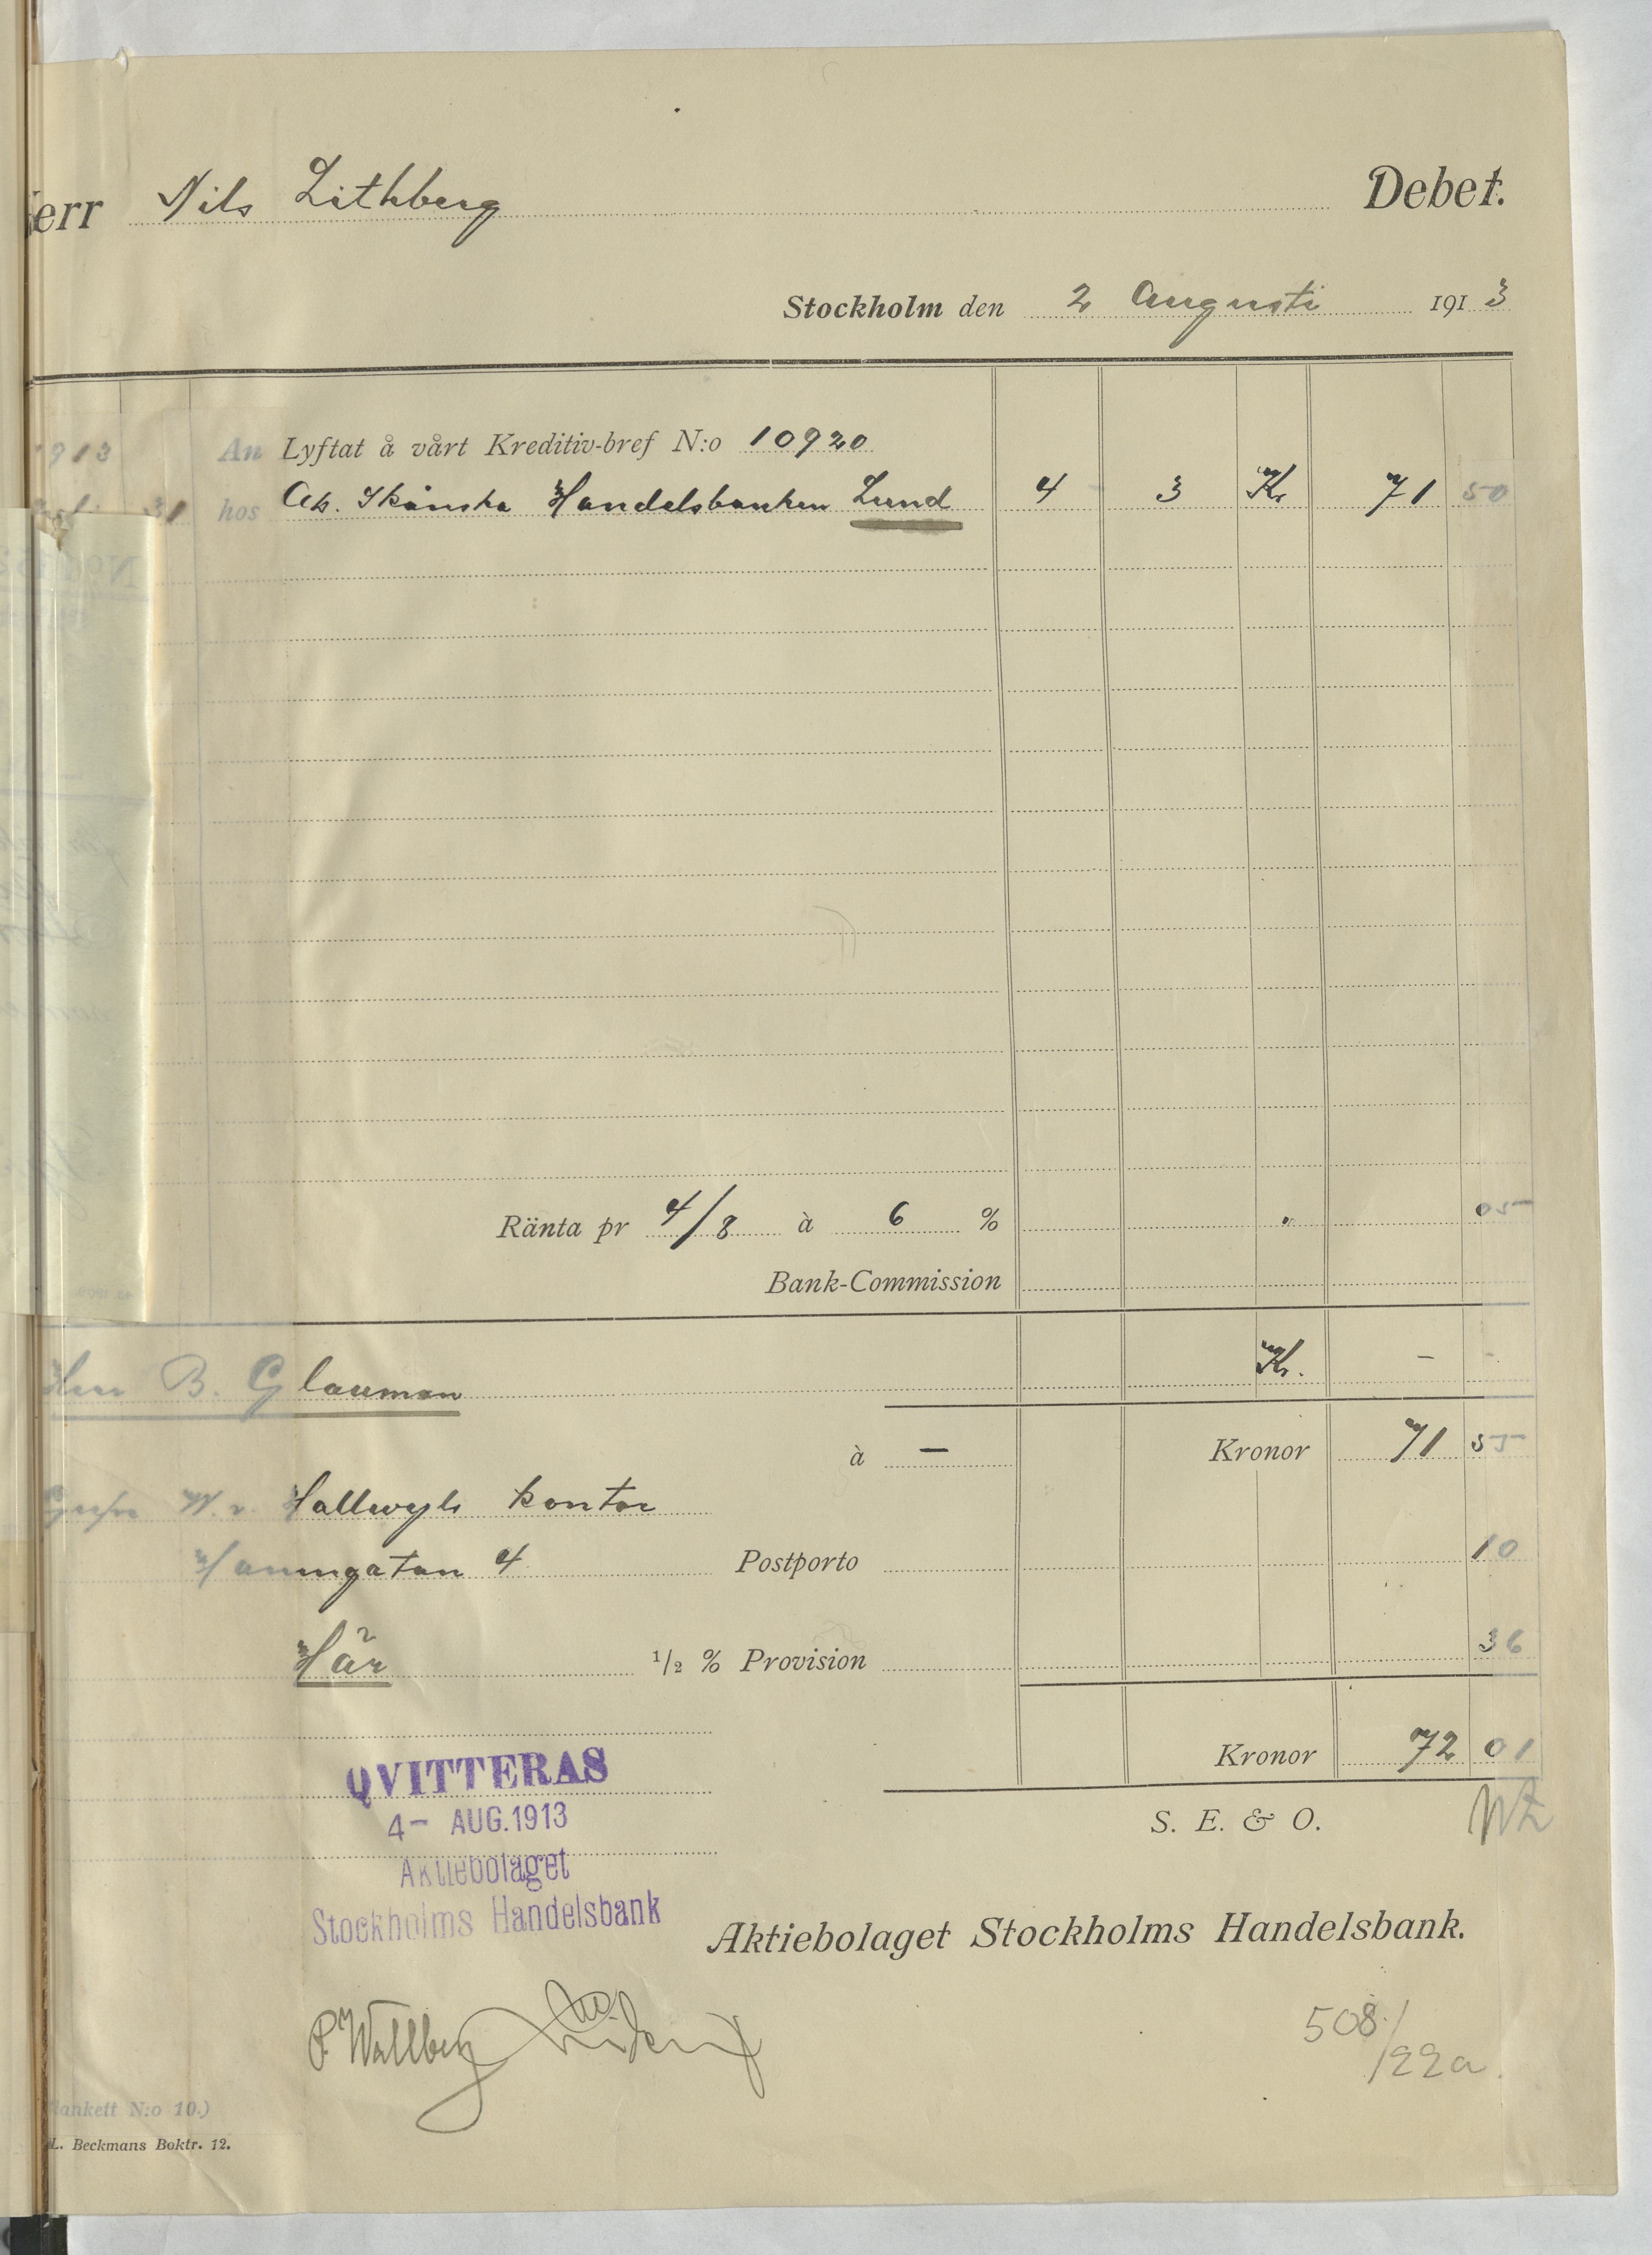 Herr Nils Lithberg Debet.
Stockholm den 2 Augusti 1913
1913 An Lyftat å vårt Kreditiv-bref N:o 10920
31 hos Ab. Skånska Handelsbanken Lund 4 3 Kr 71 50
Ränta pr 4/8 à 6 % " 05
Bank-Commission
Kr. - -
Herr B. Glauman
à — Kronor 71 55
Grefve W. v. Hallwyls kontor
Hamngatan 4 Postporto 10
Här 1/2 % Provision 36
Kronor 72 01
QVITTERAS
4- AUG. 1913
Aktiebolaget
Stockholms Handelsbank
S. E. & O.
Aktiebolaget Stockholms Handelsbank.
P. Wallberg
508/22a.
lankett N:o 10.)
L. Beckmans Boktr. 12.